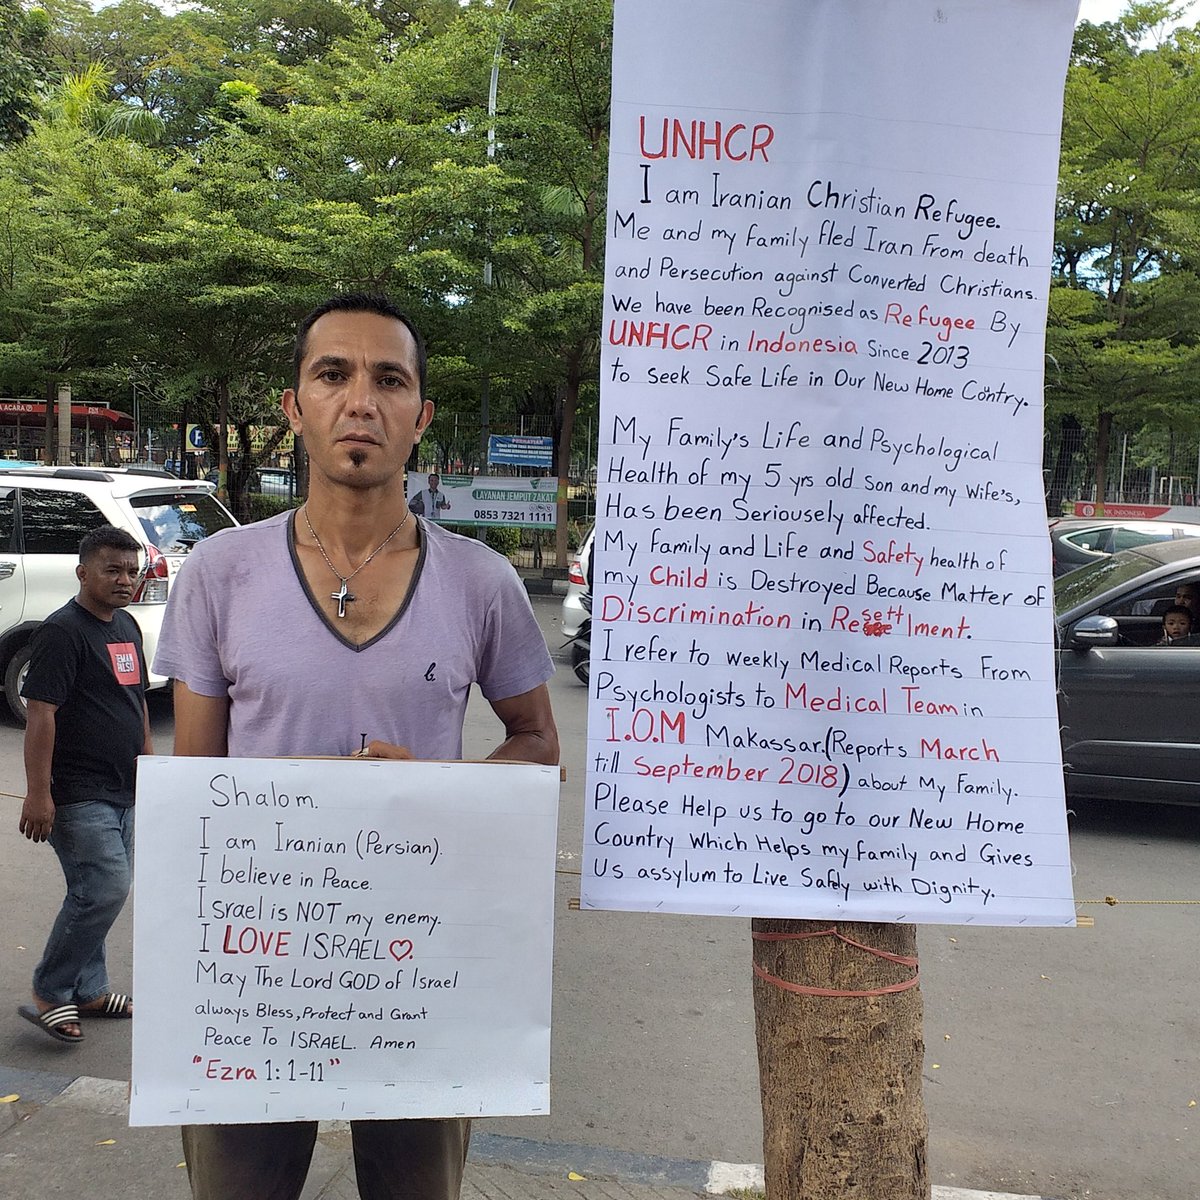 UNHCR
I am Iranian Christian Refugee.
Me and my family fled Iran From death
and Persecution against Converted Christians.
We have been Recognised as Refugee By
UNHCR in Indonesia Since 2013
to seek Safe Life in Our New Home Contry.
My Family's Life and Psychological
Health of my 5 yrs old Son and my Wife's,
Has been Seriousely affected.
My family and Life and Safety health of
my Child is Destroyed Because Matter of
Discrimination in Resettlment.
I refer to weekly Medical Reports From
Psychologists to Medical Team in
I.O.M Makassar.(Reports March
till September 2018) about My Family.
Please Help us to go to our New Home
Country Which Helps my family and Gives
Us assylum to Live Safely with Dignity.
Shalom.
I am Iranian (Persian).
I believe in Peace.
Israel is NOT my enemy.
I LOVE ISRAEL♡.
May The Lord GOD of Israel
always Bless, Protect and Grant
Peace To ISRAEL. Amen
"Ezra 1: 1-11"
LAYANAN JEMPUT ZAKAT
0853 7321 1111
PERHATIAN
NK INDONESIA
A ACARA
b.